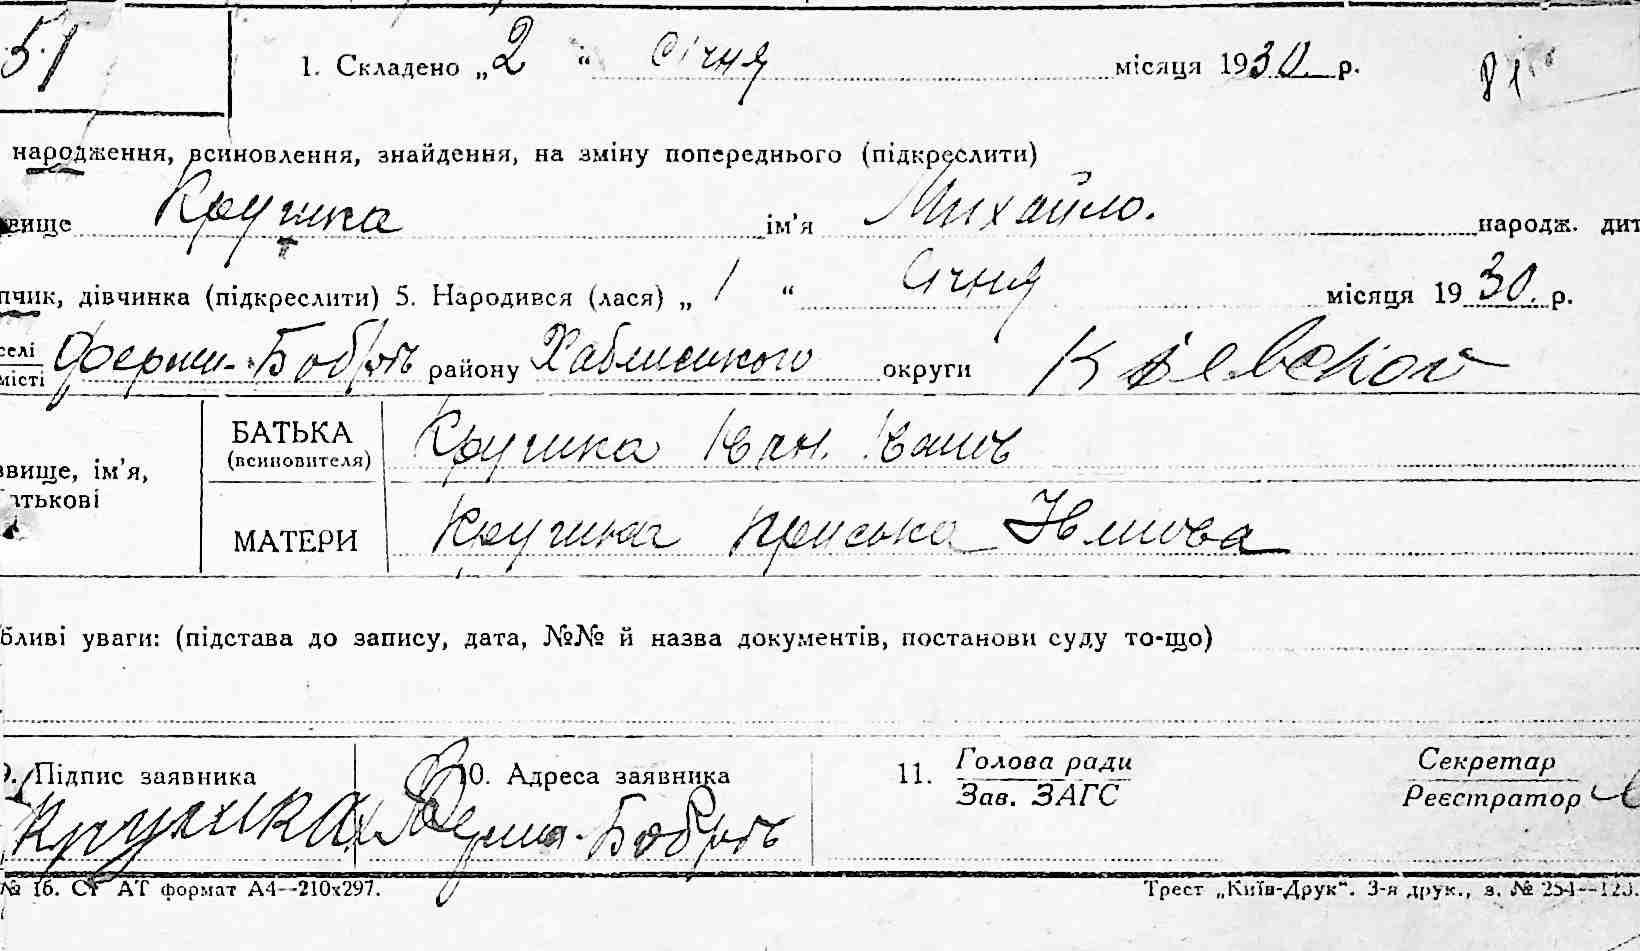 51
1. Складено „2“ Січня місяця 1930 р.
81
народження, всиновлення, знайдення, на зміну попереднього (підкреслити)
вище Крушка ім’я Михайло. народж. дит
пчик, дівчинка (підкреслити) 5. Народився (лася) „1“ Січня місяця 1930. р.
селі
місті Ферми-Бобръ району Хабенського округи Кіевской
БАТЬКА
(всиновителя) Крушка Іванъ
звище, ім’я,
атькові
МАТЕРИ Крушка Приська
бливі уваги: (підстава до запису, дата, №№ й назва документів, постанови суду то-що)
9. Підпис заявника 10. Адреса заявника 11. Голова ради Секретар
Зав. ЗАГС Реєстратор
Крушка Ферма-Бобръ
№ 16. СТ АТ формат А4—210х297. Трест „Київ-Друк“. 3-я друк., з. № 254—123.